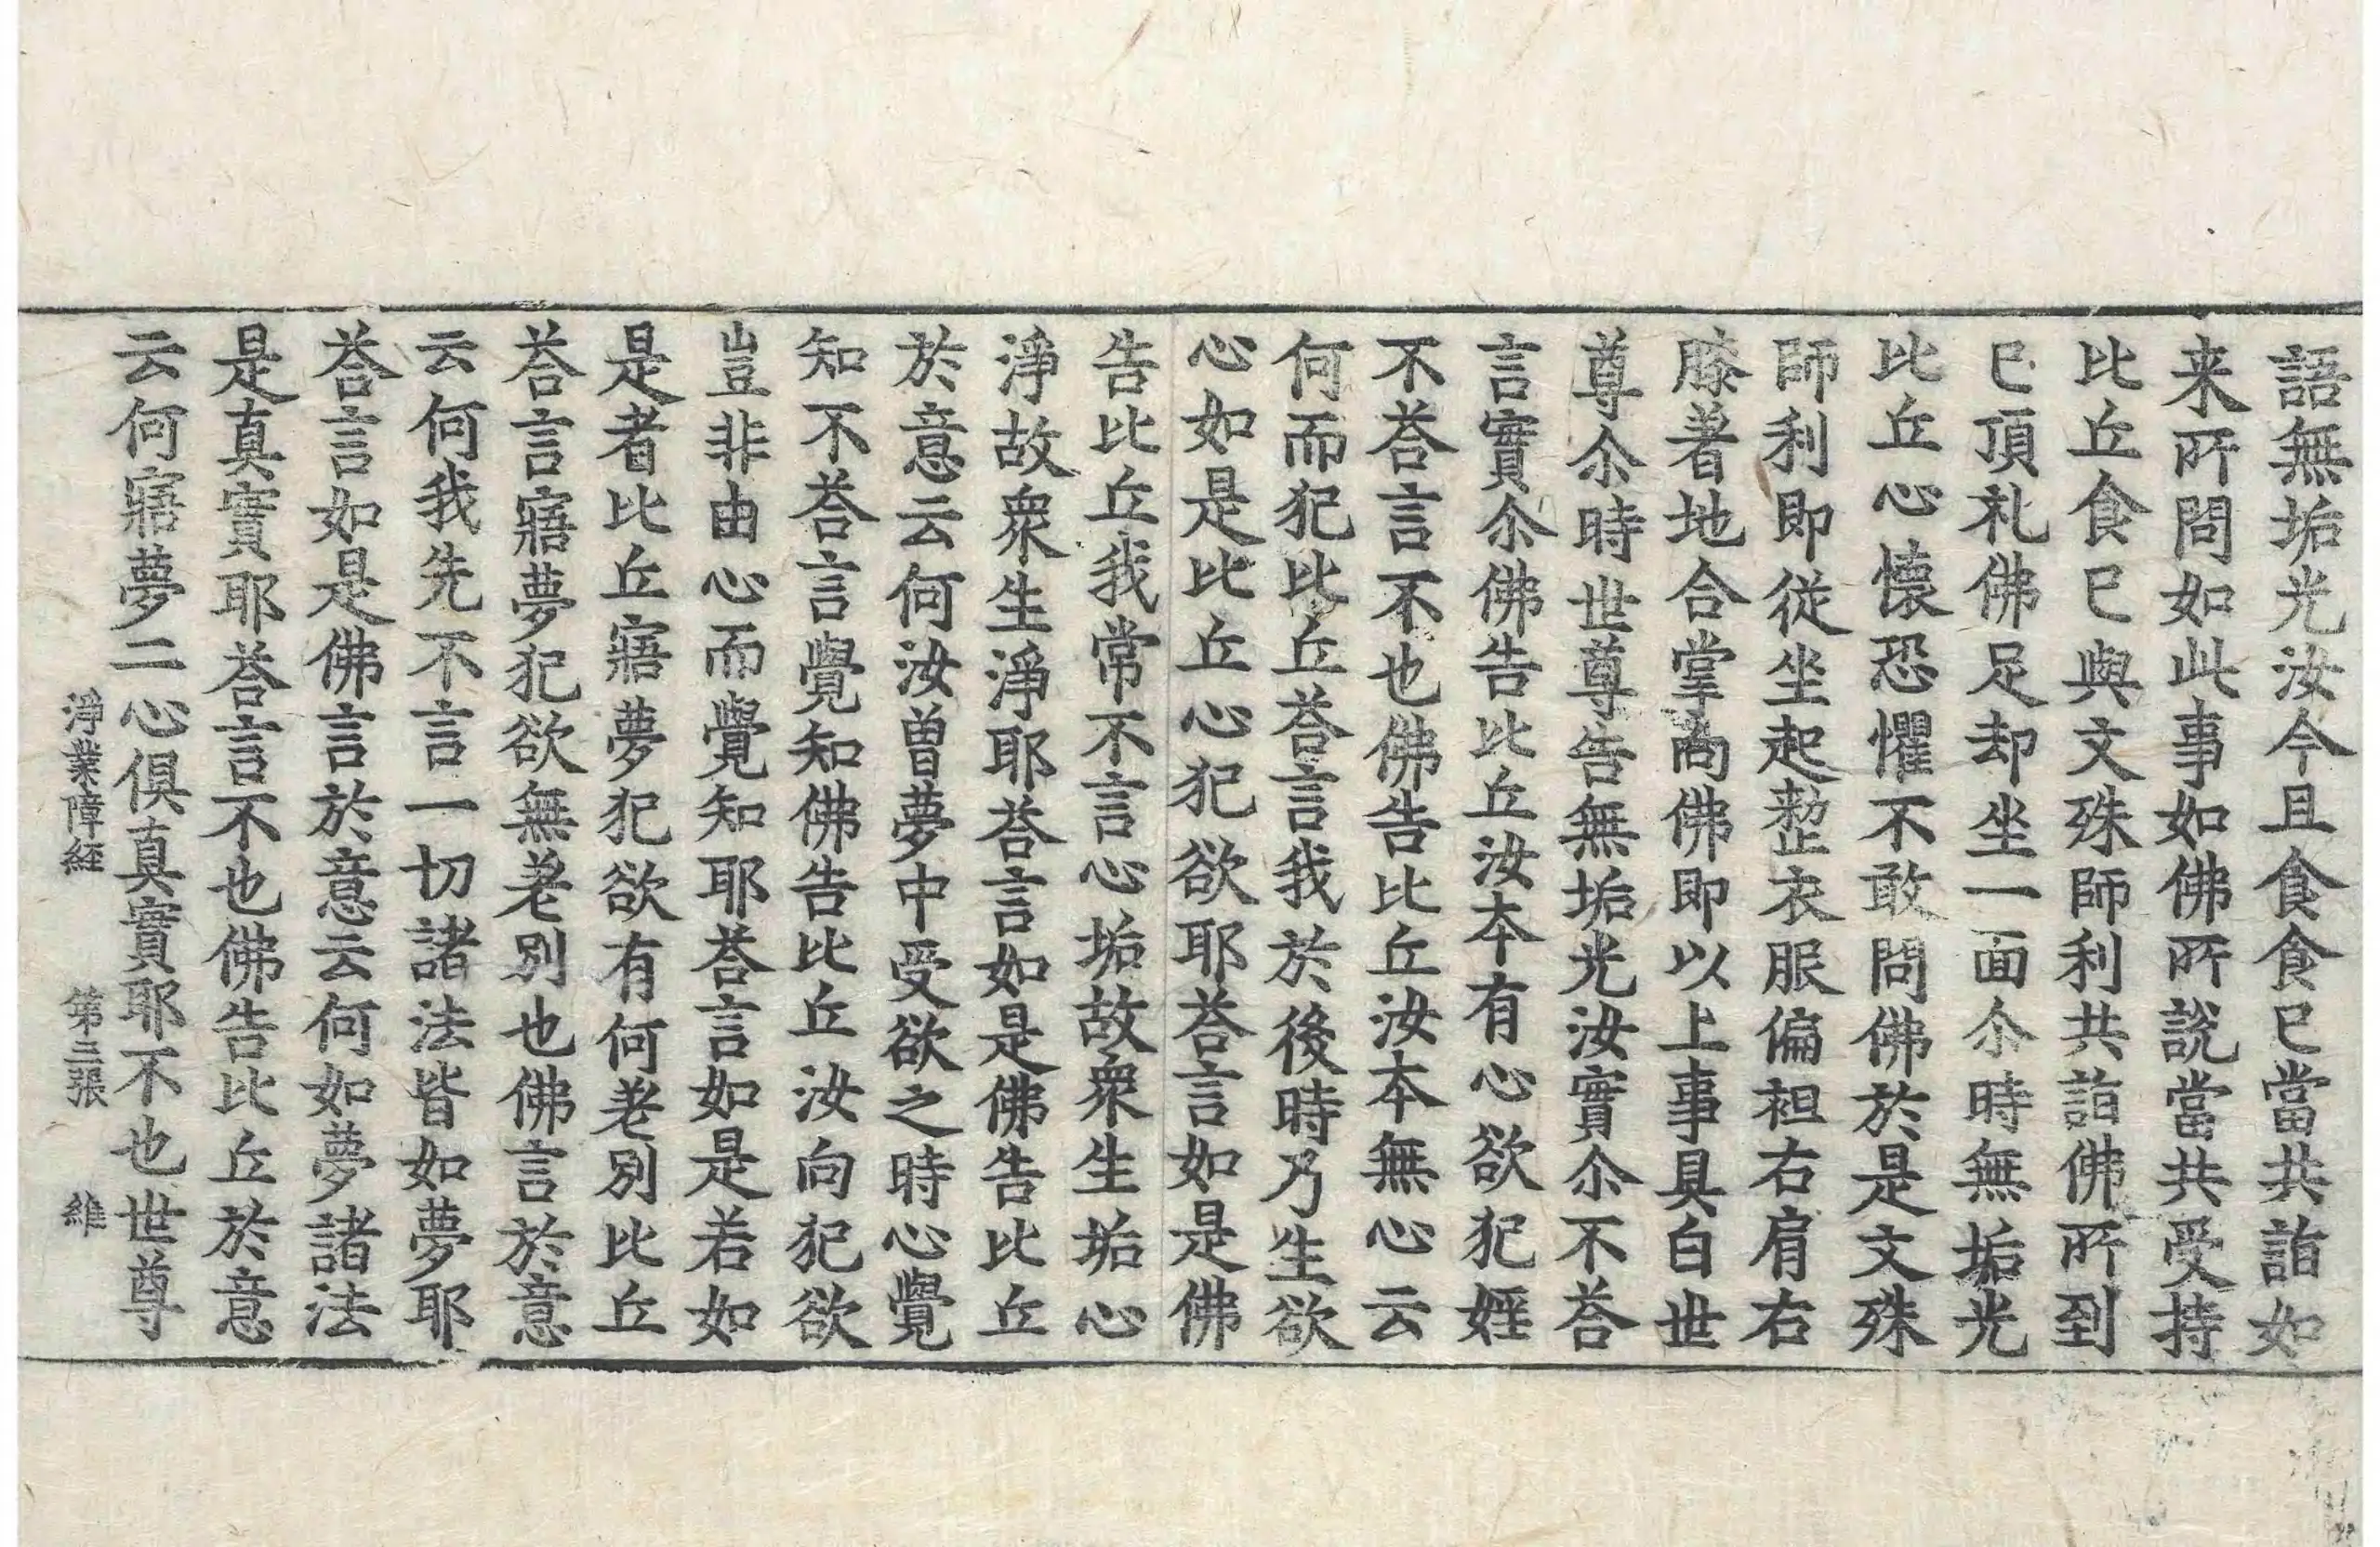 語無垢光汝今且食食已當共詣如
来所問如此事如佛所說當共受持
比丘食已與文殊師利共詣佛所到
已頂礼佛足却坐一面尒時無垢光
比丘心懷恐懼不敢問佛於是文殊
師利即從坐起整衣服偏袒右肩右
膝著地合掌向佛即以上事具白世
尊尒時世尊告無垢光汝實尒不荅
言實尒佛告比丘汝本有心欲犯婬
不荅言不也佛告比丘汝本無心云
何而犯比丘荅言我於後時乃生欲
心如是比丘心犯欲耶荅言如是佛
告比丘我常不言心垢故衆生垢心
淨故衆生淨耶荅言如是佛告比丘
於意云何汝曽夢中受欲之時心覺
知不荅言覺知佛告比丘汝向犯欲
豈非由心而覺知耶荅言如是若如
是者比丘寤夢犯欲有何差別比丘
荅言寤夢犯欲無差別也佛言於意
云何我先不言一切諸法皆如夢耶
荅言如是佛言於意云何如夢諸法
是真實耶荅言不也佛告比丘於意
云何寤夢二心俱真實耶不也世尊
淨業障經 第三張 維